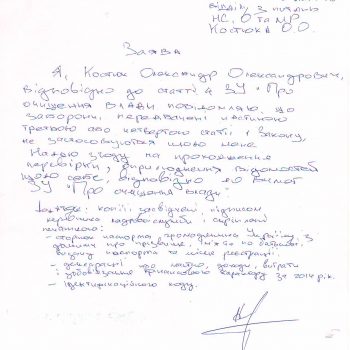 відділу з питань
НС, О та МР
Костюка О.О.
Заява
Я, Костюк Олександр Олександрович,
відповідно до статті 4 ЗУ "Про
очищення влади" повідомляю, що
заборони, передбачені частиною
третьою або четвертою статті 1 Закону,
не застосовуються щодо мене.
Надаю згоду на проходження
перевірки, оприлюднення відомостей
щодо себе відповідно до вимог
ЗУ "Про очищення влади".
Додатки: копії, засвідчені підписом
керівника служби і скріплені
печаткою:
- сторінок паспорта громадянина України з
даними про прізвище, ім'я та по батькові,
видачу паспорта та місце реєстрації;
- декларації про майно, доходи, витрати
і зобов'язання фінансового характеру за 2014 рік.
- ідентифікаційного коду.